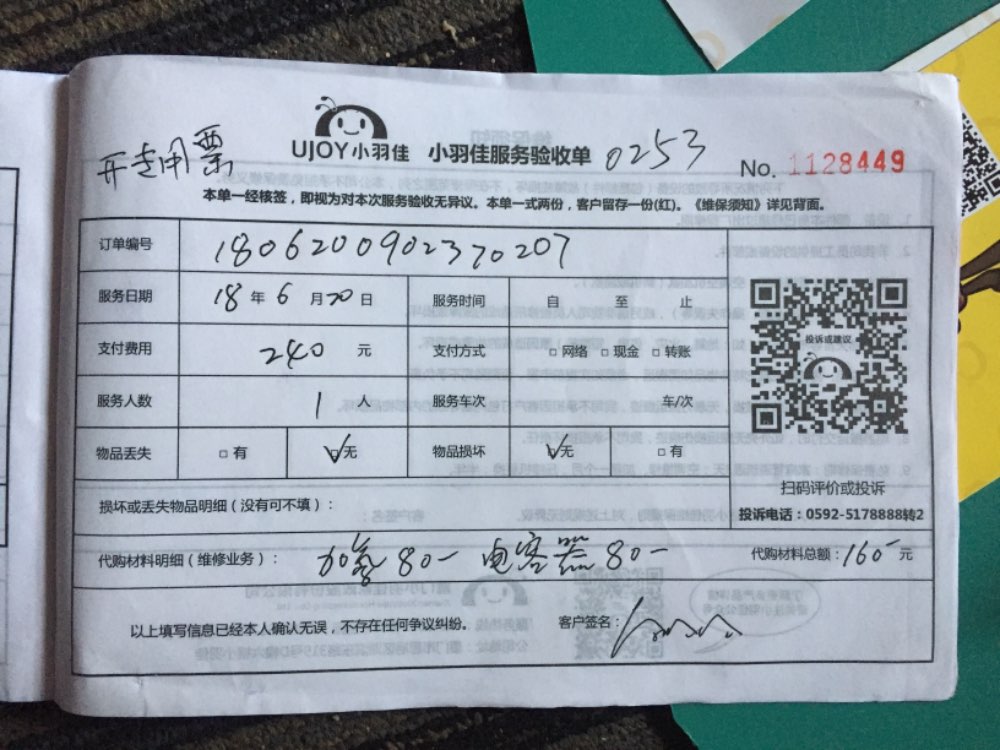 开专用票
UJOY小羽佳 小羽佳服务验收单 0253
No. 1128449
本单一经核签，即视为对本次服务验收无异议。本单一式两份，客户留存一份(红)。《维保须知》详见背面。
订单编号 1806200902370207
服务日期 18 年 6 月 20 日 服务时间 自 至 止
支付费用 240 元 支付方式 □ 网络 □ 现金 □ 转账
服务人数 1 人 服务车次 车/次
物品丢失 □ 有 □ 无 物品损坏 □ 无 □ 有
投诉或建议
扫码评价或投诉
投诉电话：0592-5178888转2
损坏或丢失物品明细（没有可不填）：
代购材料明细（维修业务）： 加氟 80- 电容器 80- 代购材料总额：160- 元
以上填写信息已经本人确认无误，不存在任何争议纠纷。 客户签名：